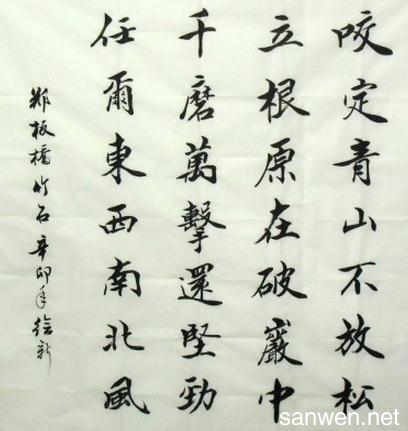 咬定青山不放松
立根原在破巖中
千磨萬擊還堅勁
任爾東西南北風
郑板橋竹石辛卯年
sanwen.net